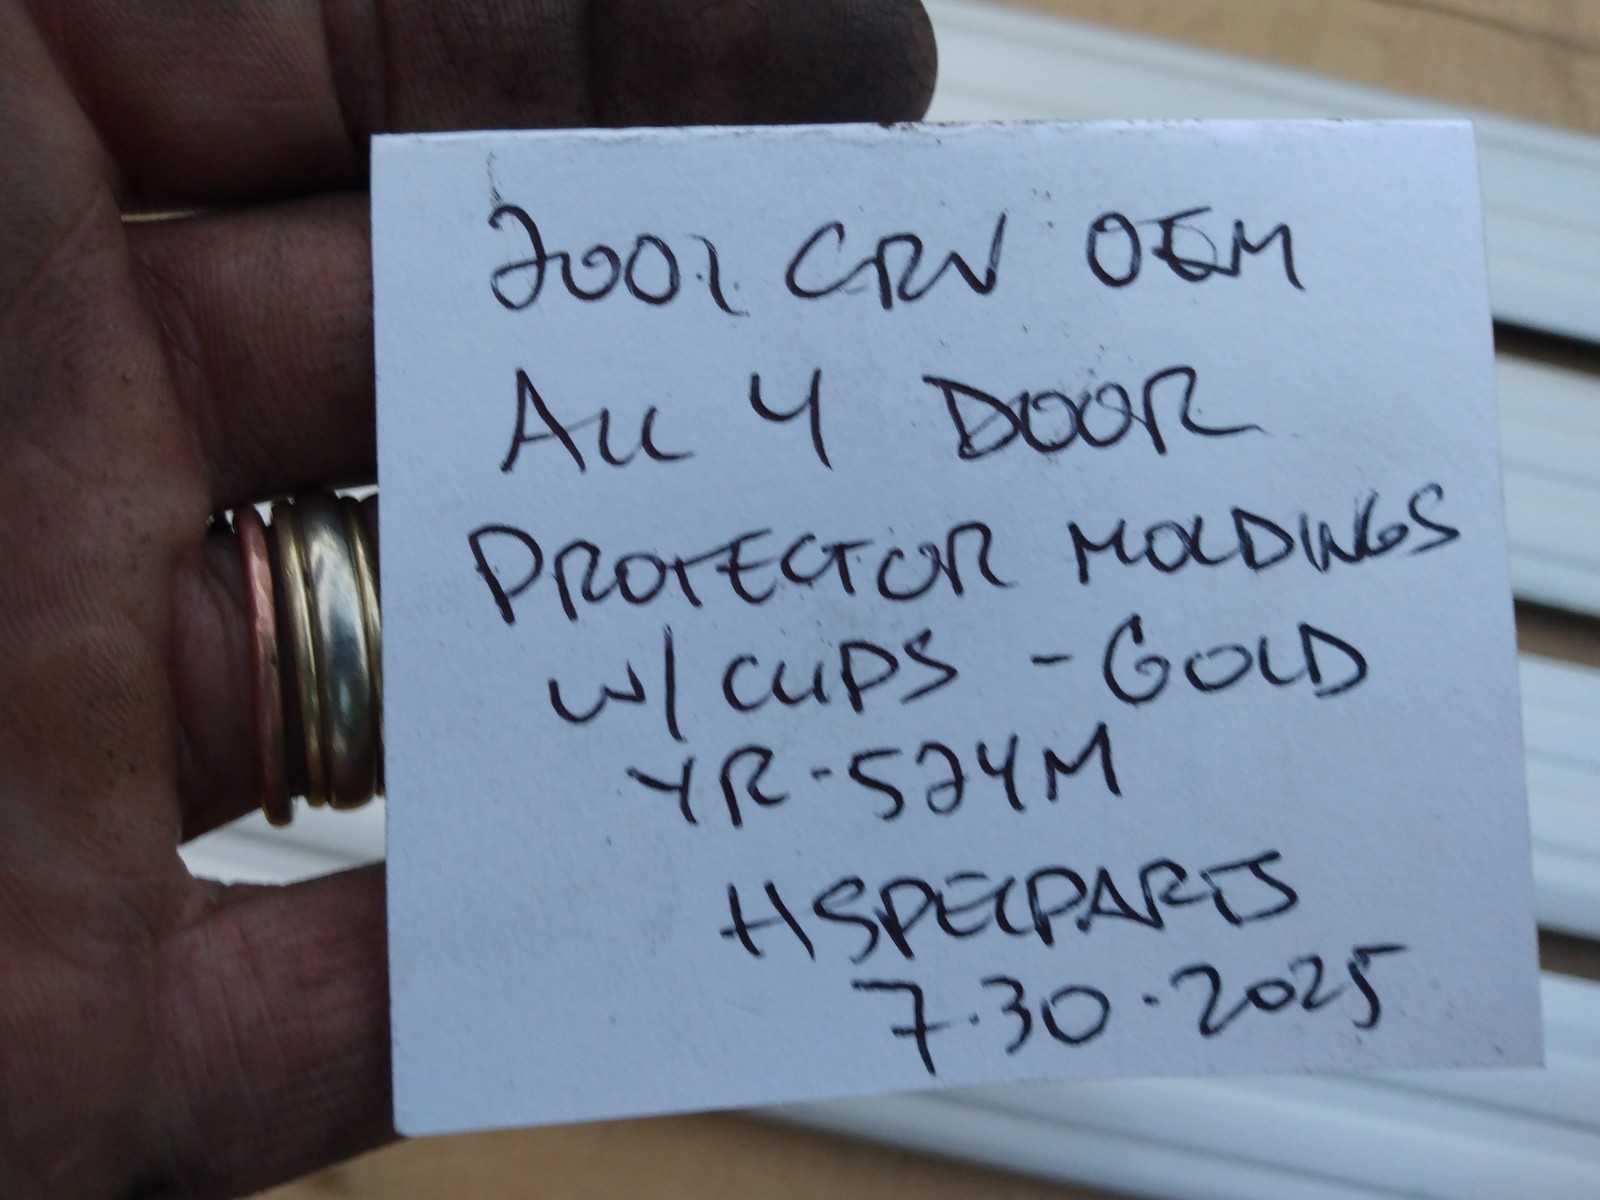 2001 CRV OEM
ALL 4 DOOR
PROTECTOR MOLDINGS
W/CLIPS - GOLD
YR-524M
HSPECPARTS
7.30.2025